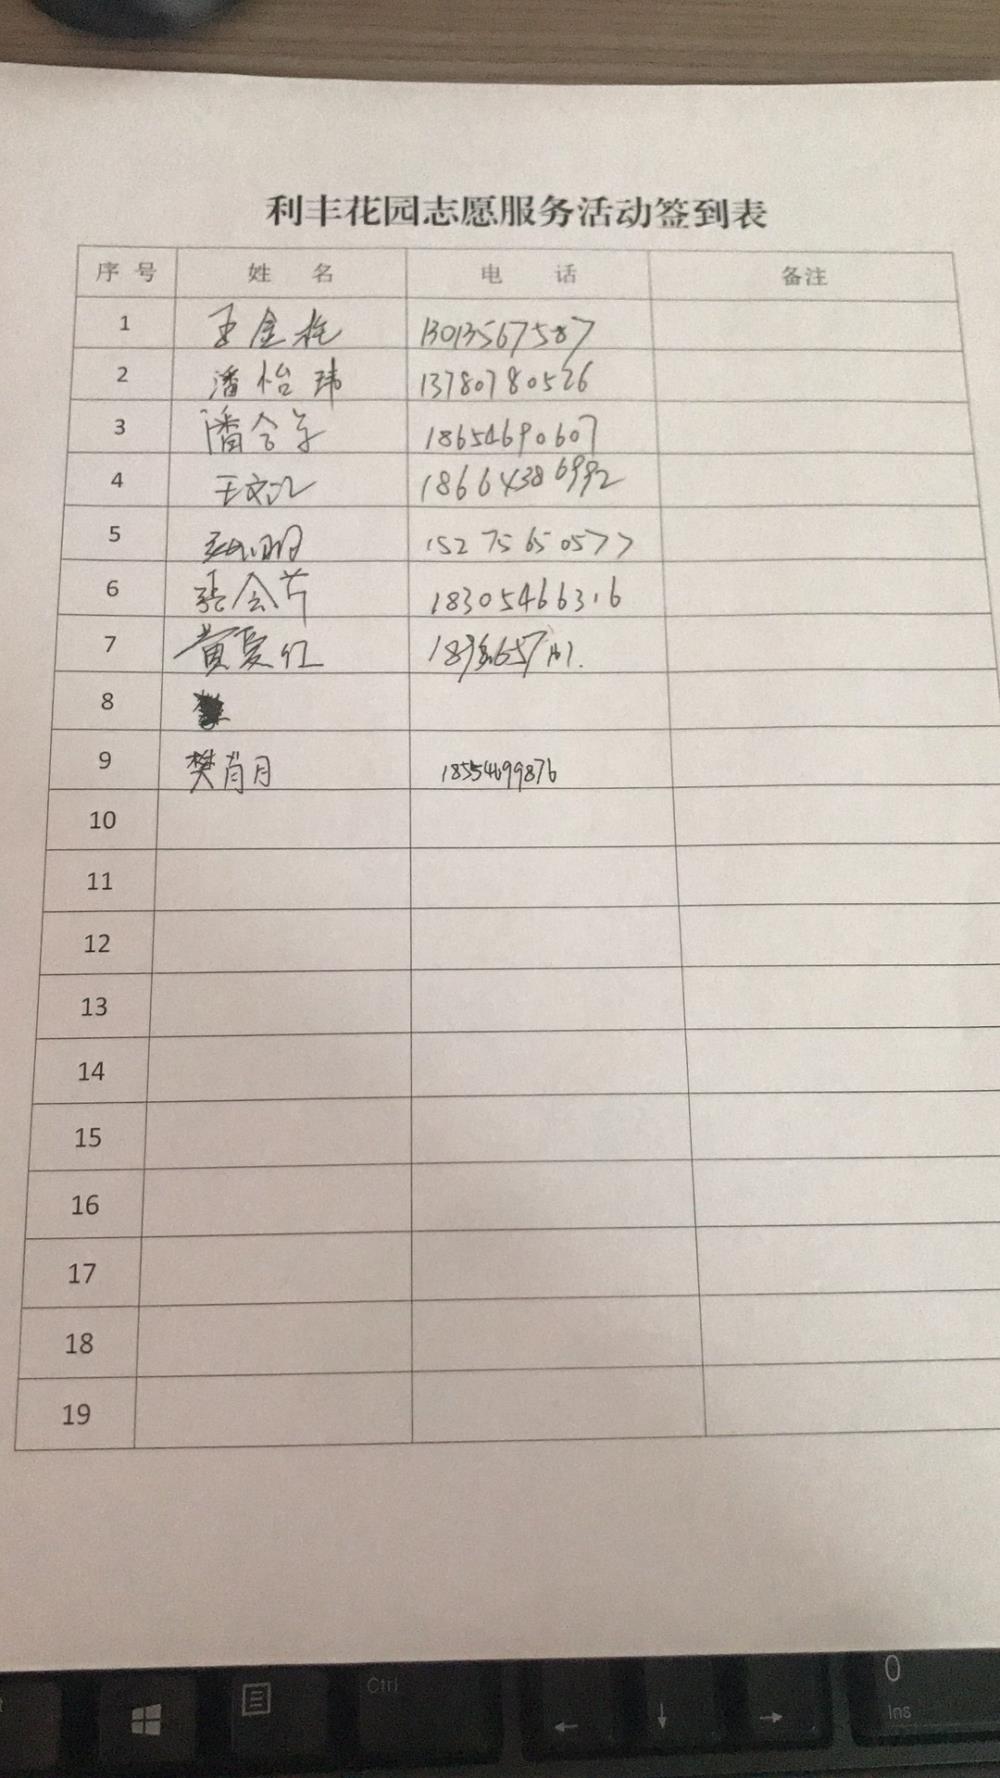 利丰花园志愿服务活动签到表
序号 姓名 电话 备注
1 王金 13013567587
2 潘怡玮 13780780526
3 潘会 18654690607
4 王文 18664386992
5 15275650577
6 张会芹 18305466316
7 黄爱红
8
9 樊肖月 18554699876
10
11
12
13
14
15
16
17
18
19
Ctrl
0
Ins
←
↓
→